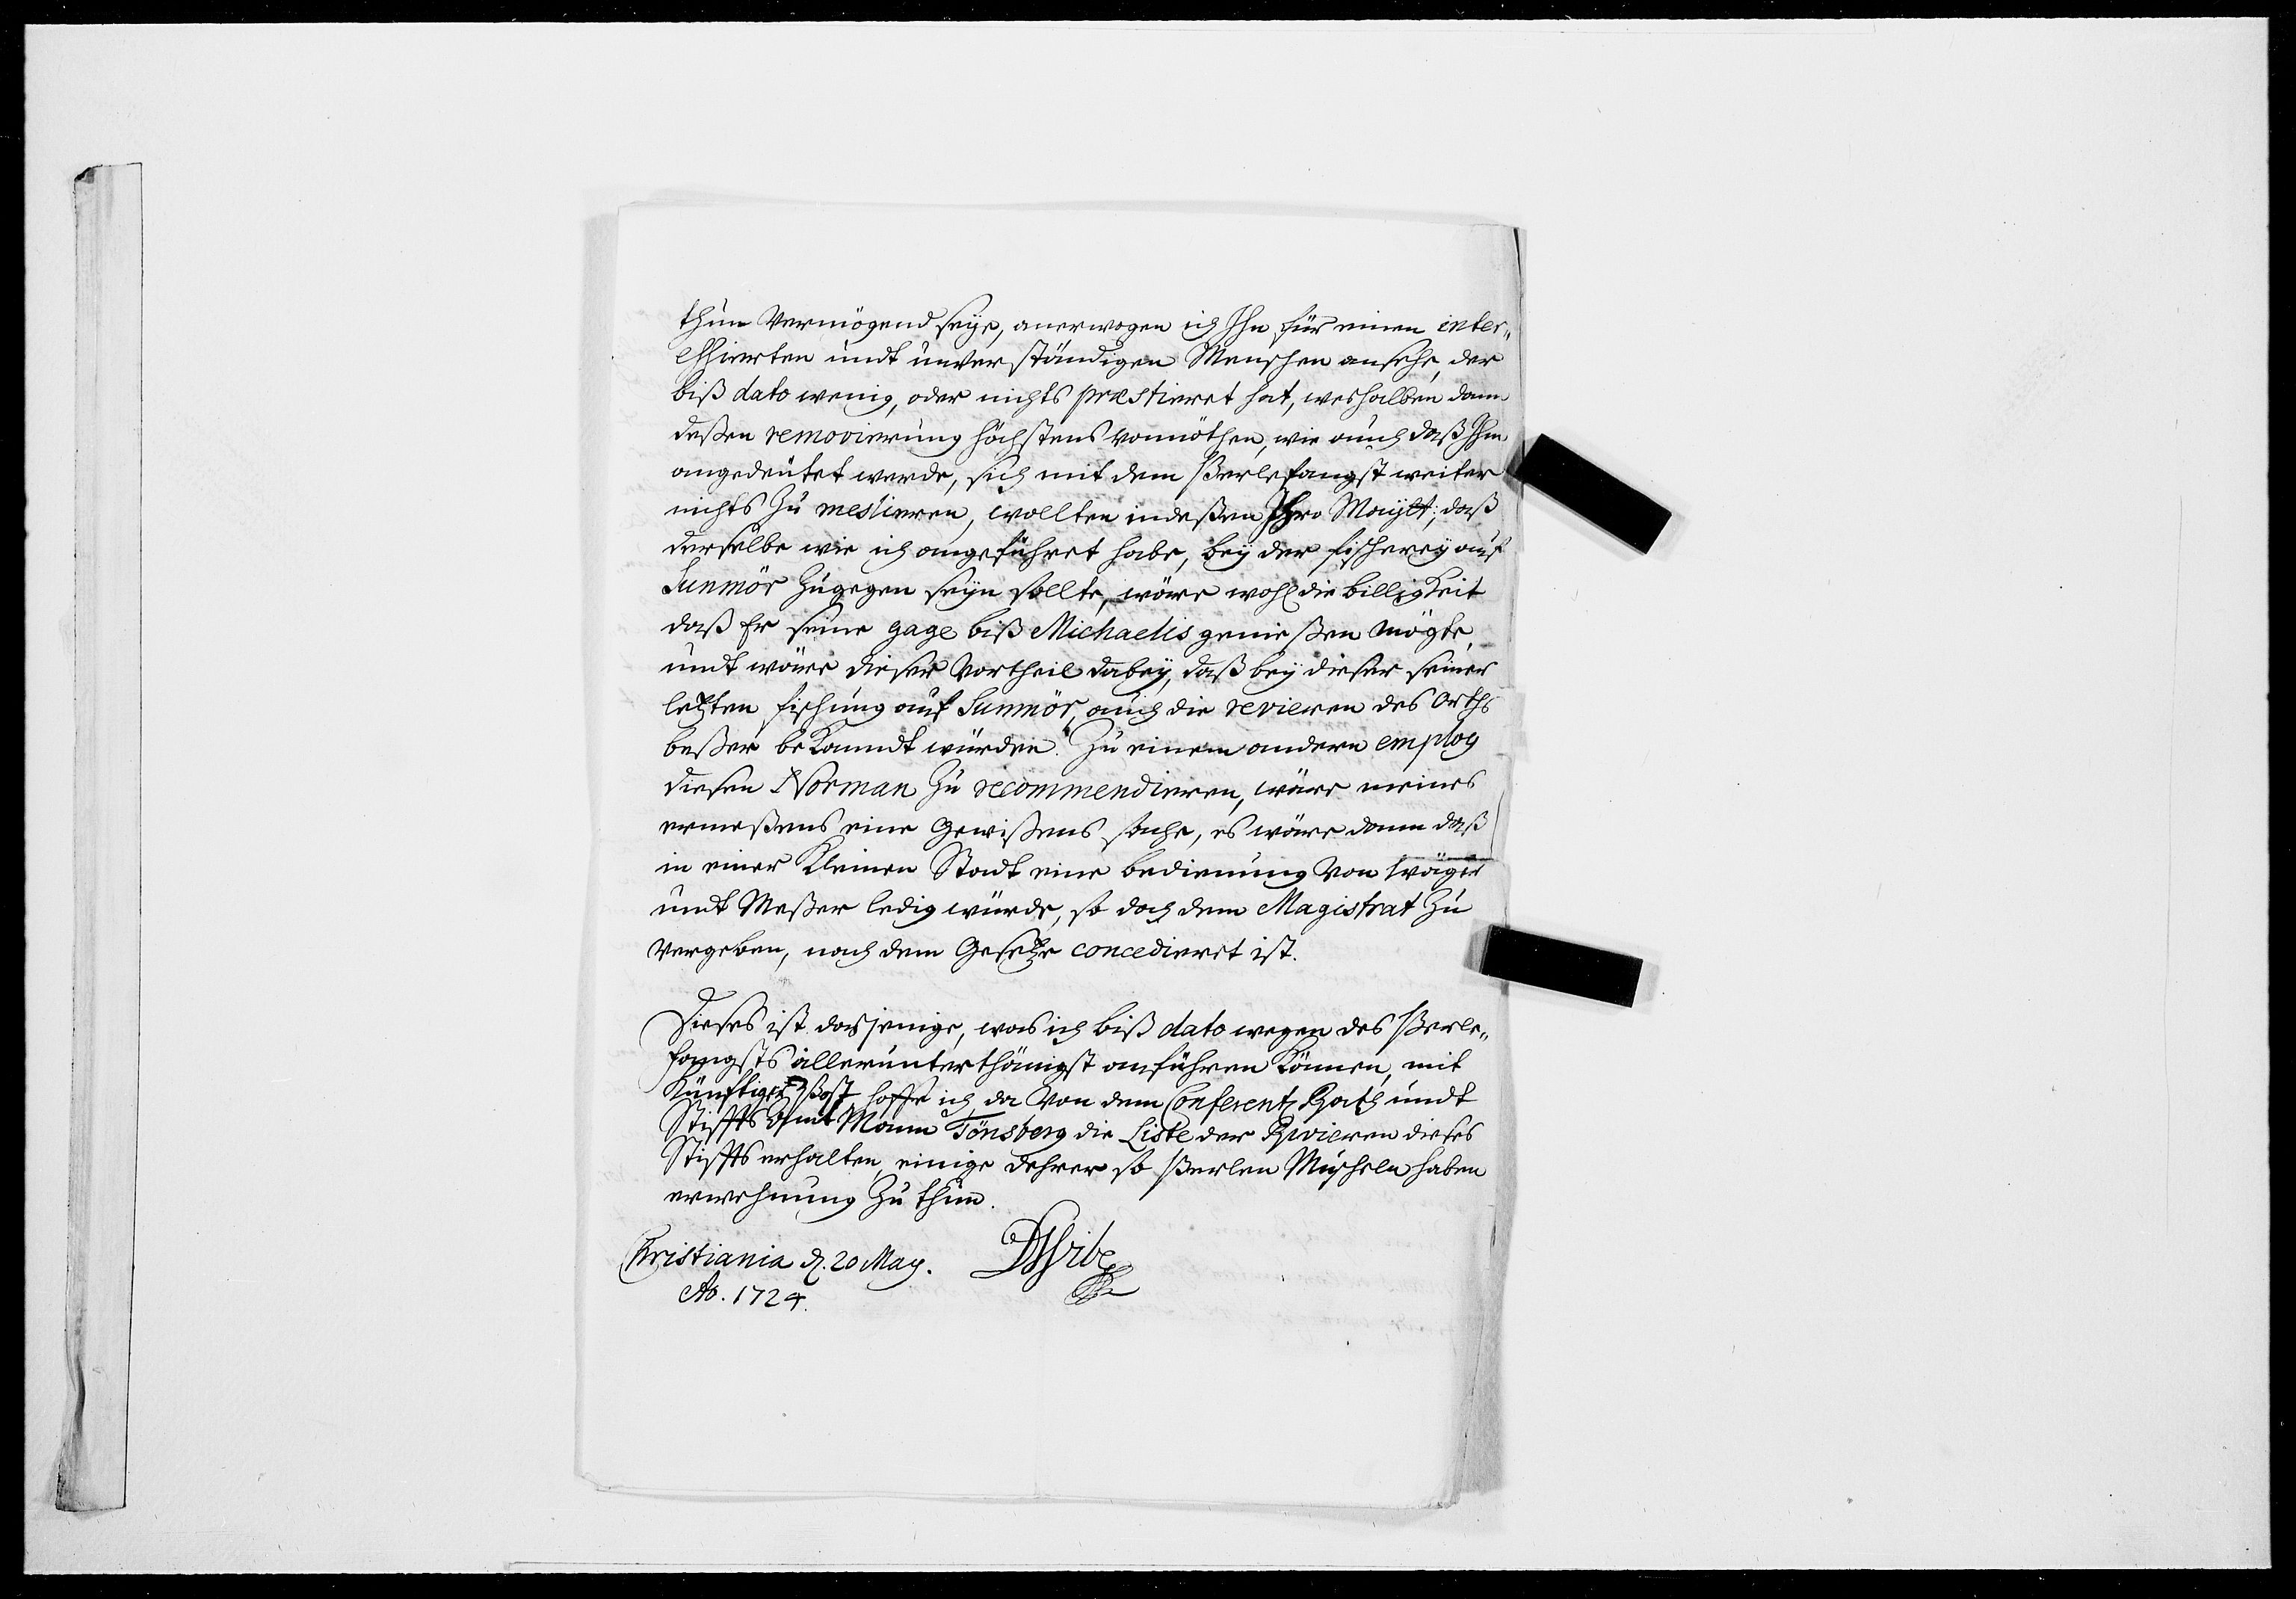 thun Vermögend seye, anerwogen ich Ihn für einen inter„
essierten undt unverständigen Menschen ansehe, der
biß dato wenig, oder nichts præstieret hat, weshalben dann
deßen removierung höchstens vonnöthen, wie auch daß Ihm
angedeutet werde, sich mit dem Perlefangst weiter
nichts Zu meslieren, wollten indeßen Ihro Maytt: daß
derselbe wie ich angeführet habe, bey der fischerey auf
Sunmör Zugegen seyn sollte, wäre wohl die billigkeit
daß Er seine gage biß Michaelis genießen mögte,
undt wäre dieser Vortheil dabey, daß bey dieser seiner
letzten fischung auf Sunmör, auch die revieren des Orths
beßer bekanndt würden. Zu einem andern employ
diesen Norman Zu recommendieren, wäre meines
ermeßens eine Gewißens sache, es wäre dann daß
in einer Kleinen Stadt eine bedienung Von Wäger
undt Meßer ledig würde, so doch dem Magistrat Zu
Vergeben, nach dem Gesetze concedieret ist.
Dieses ist dasjenige, was ich biß dato wegen des Perle„
fangsts allerunterthänigst anführen Können, mit
Künftiger Post hoffe ich, da Von dem Conferentz Rath undt
Stiffts Amt Mann Tönsberg die Liste der Rivieren dieses
Stiffts erhalten, einige dehrer so Perlen Muscheln haben
erwehnung Zu thun.
Christiania d. 20 May.
Ao. 1724.
DWibe